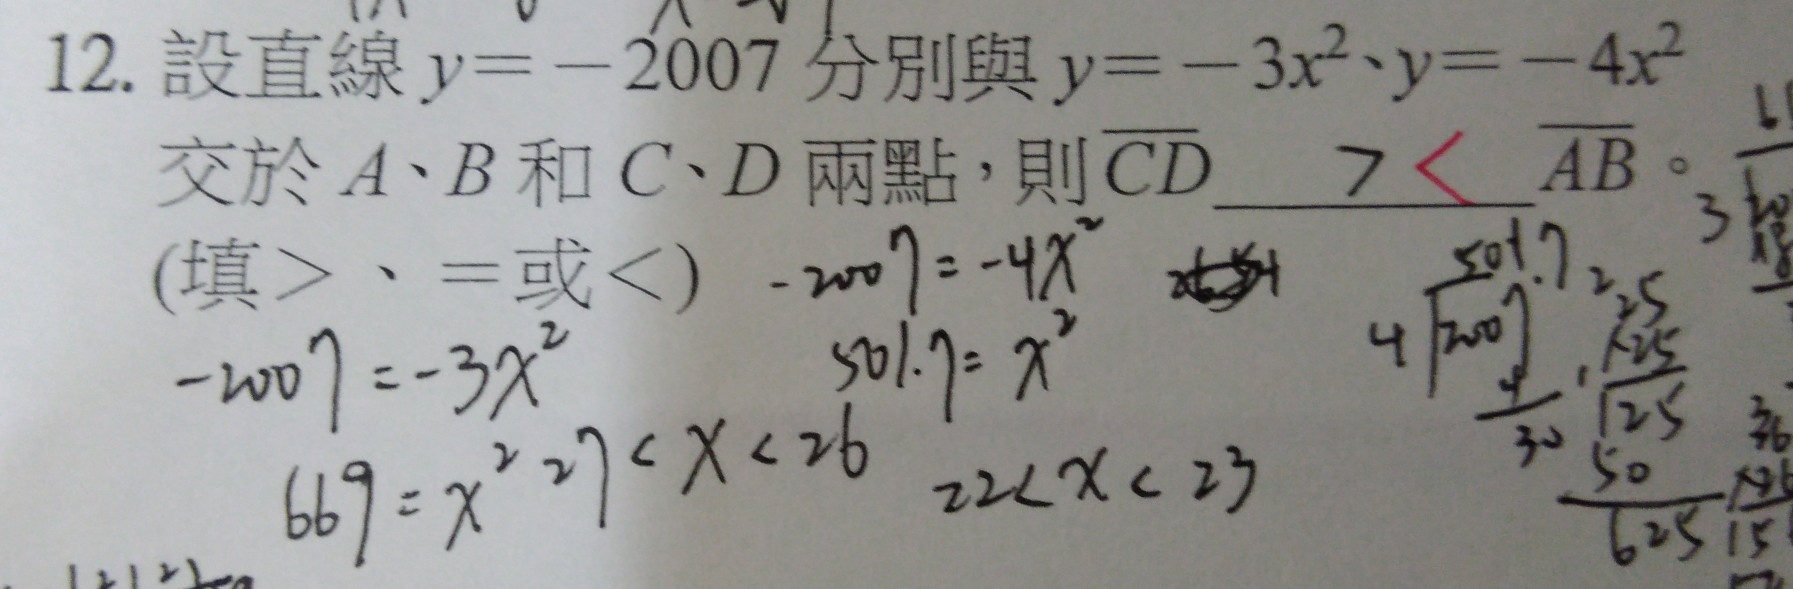 12. 設直線 y=-2007 分別與 y=-3x²、y=-4x²
交於 A、B 和 C、D 兩點，則 CD > < AB。
(填>、=或<)
-2007=-4x²
-2007=-3x²
501.7=x²
669=x²
27<x<26
22<x<23
501.7
4 2007
4
30
25
×25
125
50
625
3